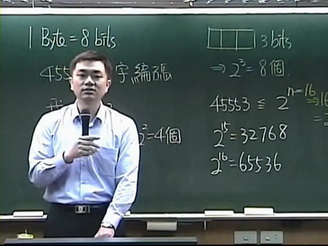 1 Byte = 8 bits
455
字編碼
2²=4個
3 bits
⇒ 2³ = 8個
45553 ≤ 2ⁿ⁼¹⁶
2¹⁵ = 32768
2¹⁶ = 65536